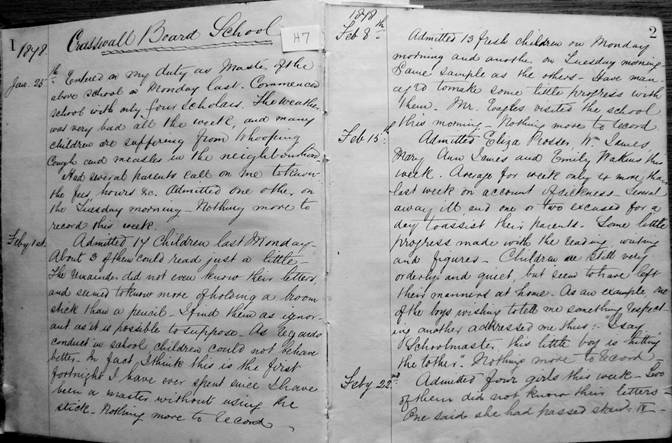 1
1878
Crasswall Board School
H7
Jan. 25th Entered on my duty as Master of the
above school on Monday last. Commenced
school with only four scholars. The weather
was very bad all the week, and many
children are suffering from Whooping
Cough and measles in the neighbourhood
Had several parents call on me to know
the fees, hours &c. Admitted one other on
the Tuesday morning - Nothing more to
record this week.
Feby 1st Admitted 17 Children last Monday -
About 3 of them could read just a little -
The remainder did not even know their letters,
and seemed to know more of holding a broom
stick than a pencil. I find them as ignor-
ant as it is possible to suppose. As regards
conduct in school children could not behave
better. In fact, I think this is the first
fortnight I have ever spent since I have
been a master without using the
stick. Nothing more to record
2
1878
Feb 8th Admitted 13 fresh children on Monday
morning and another on Tuesday morning -
Same sample as the others - Have man
aged to make some little progress with
them. Mr. Eagles visited the school
this morning - Nothing more to record
Feb 15th Admitted Eliza Prosser, Wm James,
Mary Ann James and Emily Watkins this
week. Average for week only more than
last week on account of sickness - Several
away ill and one or two excused for a
day to assist their parents. Some little
progress made with the reading writing
and figures - Children are still very
orderly and quiet, but seem to have left
their manners at home. As an example one
of the boys wishing to tell me something respect-
ing another addressed me thus:- "I say
Schoolmaster, this little boy is hitting
the tother." Nothing more to record
Feby 22nd Admitted four girls this week - Two
of them did not know their letters -
One said she had passed stand. IV -